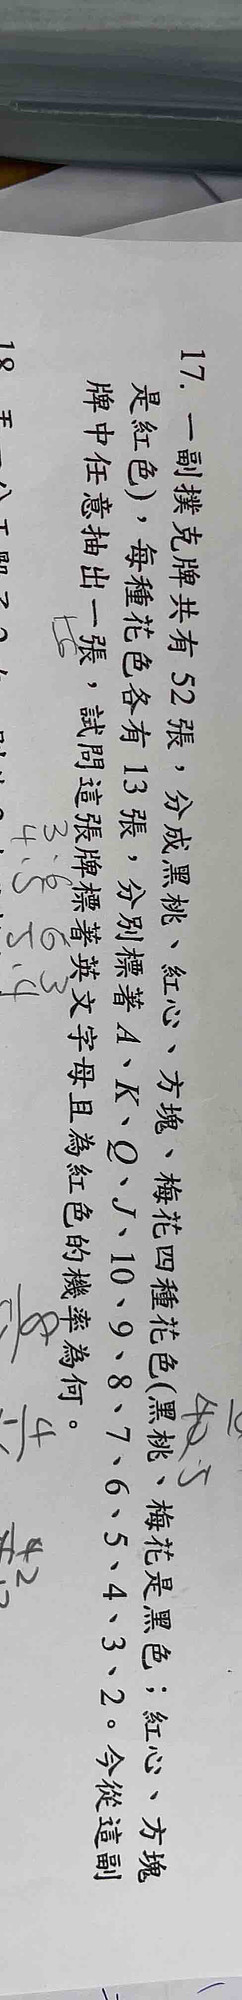 17. 一副撲克牌共有 52 張，分成黑桃、紅心、方塊、梅花四種花色(黑桃、梅花是黑色；紅心、方塊
是紅色)，每種花色各有 13 張，分別標著 A、K、Q、J、10、9、8、7、6、5、4、3、2。今從這副
牌中任意抽出一張，試問這張牌標著英文字母且為紅色的機率為何。
3.6 6 3
4.5 5.4
8
4
42
18